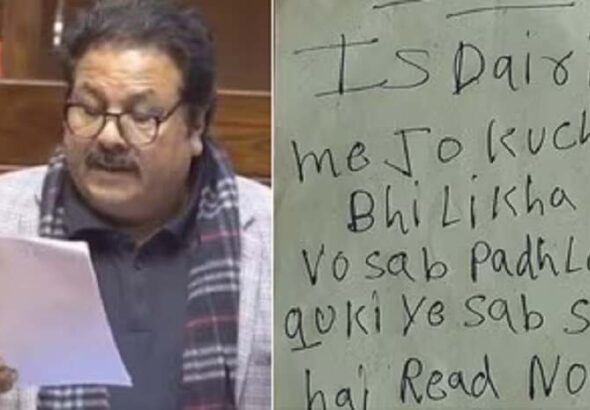 IS Dairi
me Jo kuch
Bhi Likha
Vo sab Padh Le
quki Ye sab S
hai Read No